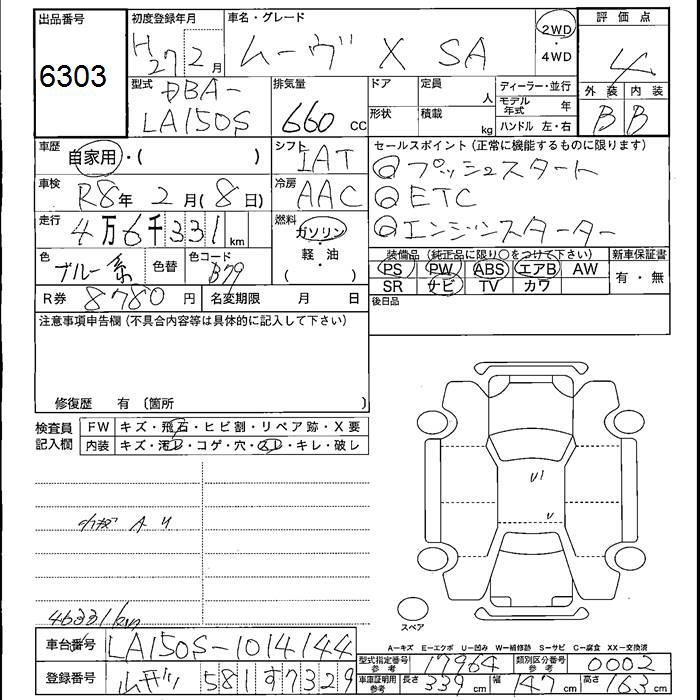 出品番号 初度登録年月 車名・グレード 評価点
6303 H27 2月 ムーヴ X SA 2WD・4WD 4
外装 内装
B B
型式 DBA-LA150S 排気量 660cc ドア 定員 人 形状 積載 kg
ディーラー・並行
モデル年式 年
ハンドル 左・右
車歴 自家用・( ) シフト IAT
セールスポイント (正常に機能するものに限ります)
プッシュスタート
ETC
エンジンスターター
車検 R8年 2月(8日) 冷房 AAC
走行 4万6千331km 燃料 ガソリン・軽・油 ( )
色 ブルー系 色替 色コード B79
装備品 (純正品に限り○をつけて下さい) 新車保証書
PS PW ABS エアB AW 有・無
SR ナビ TV カワ
R券 8780円 名変期限 月 日 後日品
注意事項申告欄 (不具合内容等は具体的に記入して下さい)
修復歴 有 〔箇所 〕
検査員記入欄 FW キズ・飛石・ヒビ割・リペア跡・X要
内装 キズ・汚レ・コゲ・穴・スレ・キレ・破レ
A U
U1
U
46331km
スペア
A-キズ E-エクボ U-凹み W-補修跡 S-サビ C-腐食 XX-交換済
車台番号 LA150S-1014144
型式指定番号 参考 17964 類別区分番号 参考 0002
登録番号 581 す 7329
車庫証明用 参考 長さ 339cm 幅 147cm 高さ 163cm